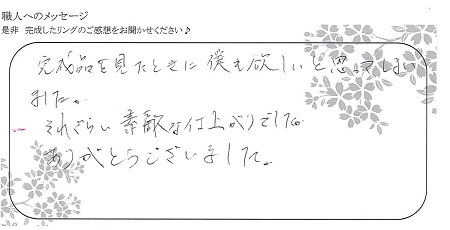 職人へのメッセージ
是非 完成したリングのご感想をお聞かせください♪
完成品を見たときに僕も欲しいと思ってしまい
ました。
それぐらい素敵な仕上がりでした。
ありがとうございました。